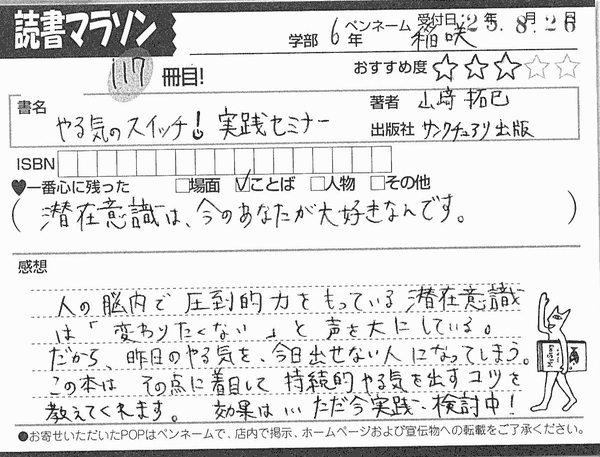 読書マラソン
学部 6年 ペンネーム 稲咲 受付日: 25.年 8.月 26日
117 冊目! おすすめ度 ★★★☆☆
書名 やる気のスイッチ! 実践セミナー 著者 山﨑拓巳
出版社 サンクチュアリ出版
ISBN
♥一番心に残った □場面 ☑ことば □人物 □その他
(潜在意識は、今のあなたが大好きなんです。)
感想
人の脳内で圧倒的力をもっている潜在意識
は「変わりたくない」と声を大にしている。
だから、昨日のやる気を、今日出せない人になってしまう。
この本は その点に着目して持続的やる気を出すコツを
教えてくれます。 効果は…ただ今実践・検討中!
●お寄せいただいたPOPはペンネームで、店内で掲示、ホームページおよび宣伝物への転載をご了承ください。